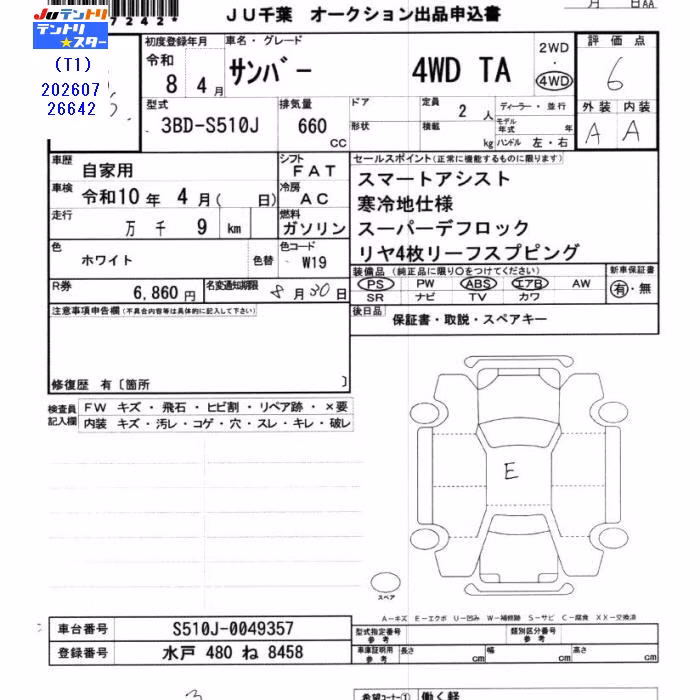 7242*
月 日AA
JUテントリ
テントリ★スター
JU千葉 オークション出品申込書
(T1)
202607
26642
初度登録年月
令和
8 4月
車名・グレード
サンバー 4WD TA
2WD
・
4WD
評価点
6
外装 内装
A A
型式
3BD-S510J
排気量
660
CC
ドア
形状
定員 2 人
積載 kg
ディーラー・並行
モデル年式 年
ハンドル 左・右
車歴
自家用
シフト
FAT
車検 令和10年 4月( 日)
冷房
AC
走行
万 千 9 km
燃料
ガソリン
色
ホワイト
色替
色コード
W19
R券
6,860円
名変通知期限
8月30日
セールスポイント(正常に機能するものに限ります)
スマートアシスト
寒冷地仕様
スーパーデフロック
リヤ4枚リーフスプピング
装備品(純正品に限り○をつけてください)
PS PW ABS エアB AW
SR ナビ TV カワ
新車保証書
有・無
後日品
保証書・取説・スペアキー
注意事項申告欄(不具合内容等は具体的に記入して下さい)
修復歴 有〔箇所 〕
検査員記入欄
FW キズ・飛石・ヒビ割・リペア跡・×要
内装 キズ・汚レ・コゲ・穴・スレ・キレ・破レ
E
スペア
A-キズ E-エクボ U-凹み W-補修跡 S-サビ C-腐食 XX-交換済
車台番号 S510J-0049357
登録番号 水戸 480 ね 8458
型式指定番号
参考
類別区分番号
参考
車庫証明用
参考
長さ cm
幅 cm
高さ cm
3
希望コーナー① 働く軽